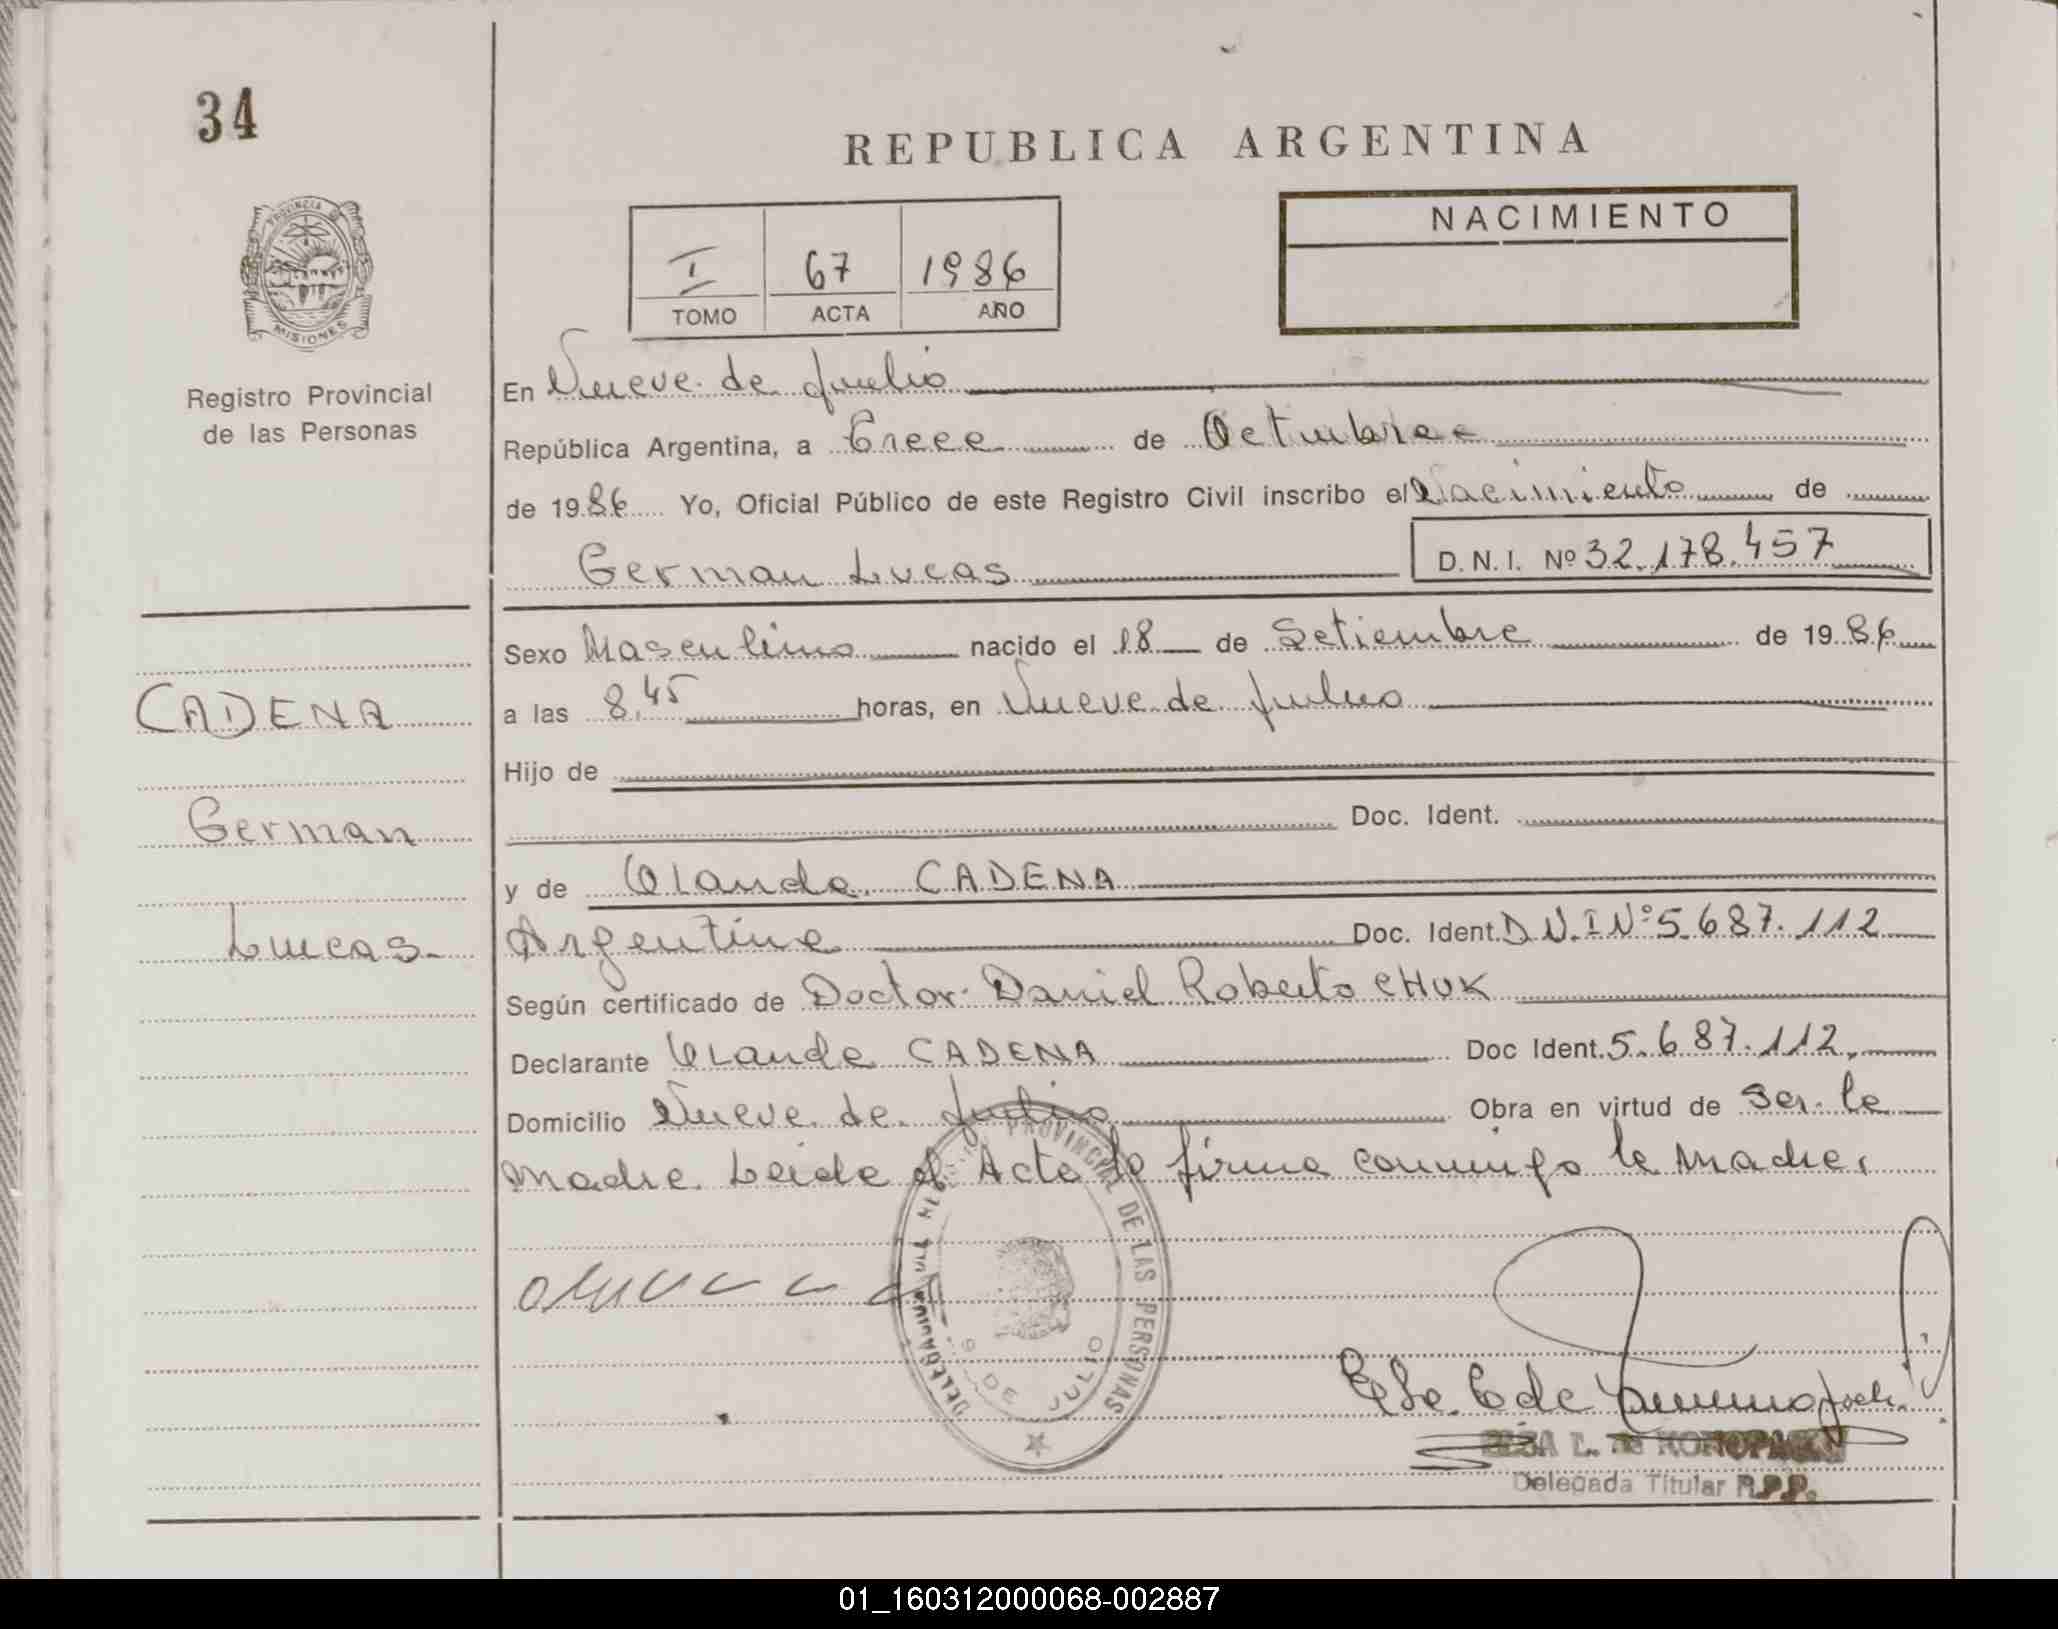 34
REPUBLICA ARGENTINA
PROVINCIA DE
MISIONES
Registro Provincial
de las Personas
I 67 1986
TOMO ACTA AÑO
NACIMIENTO
En Nueve de Julio
República Argentina, a Trece de Octubre
de 1986 Yo, Oficial Público de este Registro Civil inscribo el Nacimiento de
German Lucas D.N.I. Nº 32.178.457
Sexo Masculino nacido el 18 de Setiembre de 1986
CADENA
German
Lucas
a las 8,45 horas, en Nueve de Julio
Hijo de
Doc. Ident.
y de Olanda CADENA
Argentina Doc. Ident. D.N.I Nº 5.687.112
Según certificado de Doctor Daniel Roberto CHUK
Declarante Olanda CADENA Doc Ident. 5.687.112
Domicilio Nueve de Julio Obra en virtud de Ser la
Madre Leida el Acta la firma conmigo la Madre,
PROVINCIAL DE LAS PERSONAS
DELEGACION
9 DE JULIO
ELSA L. de KONOPACKI
Delegada Titular R.P.P.
01_160312000068-002887